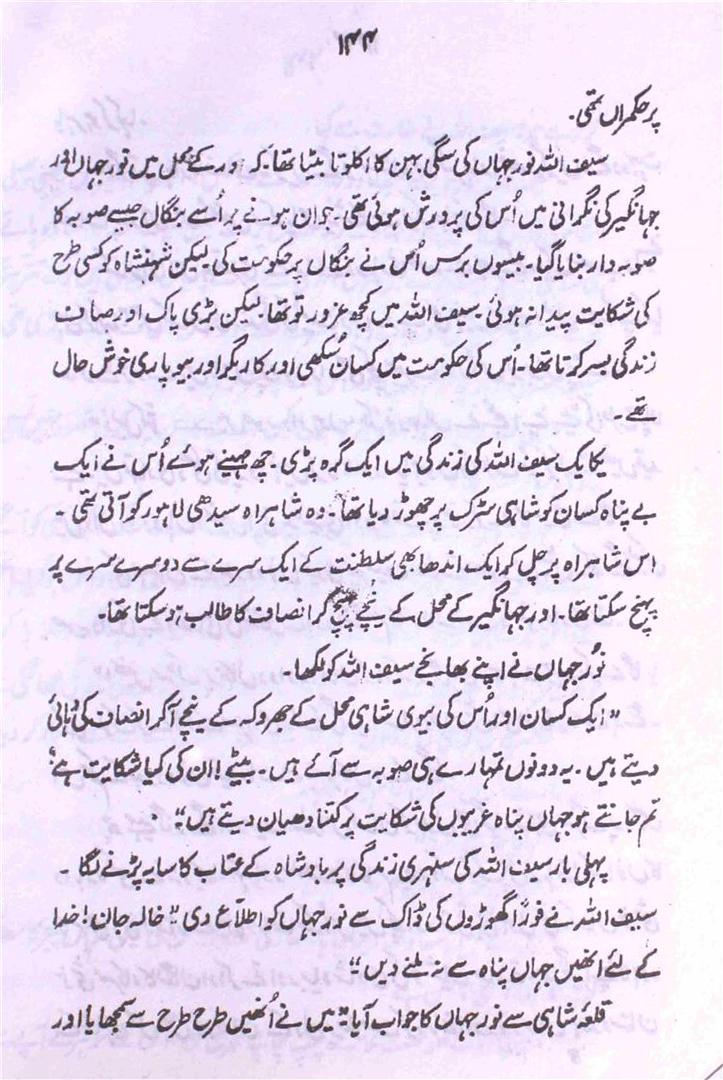 ۱۴۴
پر حکمراں تھی۔
سیف اللہ نور جہاں کی سگی بہن کا اکلوتا بیٹا تھا۔ کہ اور کے محل میں نور جہاں اور
جہانگیر کی نگرانی میں اُس کی پرورش ہوئی تھی۔ جوان ہونے پر اسے بنگال جیسے صوبہ کا
صوبہ دار بنایا گیا۔ بیسوں برس اُس نے بنگال پر حکومت کی لیکن شہنشاہ کو کسی طرح
کی شکایت پیدا نہ ہوئی۔ سیف اللہ میں کچھ غرور تو تھا۔ لیکن بڑی پاک اور صاف
زندگی بسر کرتا تھا۔ اس کی حکومت میں کسان سُکھی اور کاریگر اور بیوپاری خوش حال
تھے۔
یکایک سیف اللہ کی زندگی میں ایک گرہ پڑی۔ چھ مہینے ہوئے اُس نے ایک
بے پناہ کسان کو شاہی سڑک پر چھوڑ دیا تھا۔ وہ شاہراہ سیدھی لاہور کو آتی تھی۔
اس شاہراہ پر چل کر ایک اندھا بھی سلطنت کے ایک سرے سے دوسرے سرے پر
پہنچ سکتا تھا۔ اور جہانگیر کے محل کے نیچے پہنچ کر انصاف کا طالب ہو سکتا تھا۔
نور جہاں نے اپنے بھانجے سیف اللہ کو لکھا۔
"ایک کسان اور اُس کی بیوی شاہی محل کے جھروکہ کے نیچے آ کر انصاف کی دُہائی
دیتے ہیں۔ یہ دونوں تمہارے ہی صوبہ سے آئے ہیں۔ بیٹے! ان کی کیا شکایت ہے؟
تم جانتے ہو جہاں پناہ غریبوں کی شکایت پر کتنا دھیان دیتے ہیں"۔
پہلی بار سیف اللہ کی سنہری زندگی پر بادشاہ کے عتاب کا سایہ پڑنے لگا۔
سیف اللہ نے فوراً گھوڑوں کی ڈاک سے نور جہاں کو اطلاع دی "خالہ جان! خدا
کے لئے انھیں جہاں پناہ سے نہ ملنے دیں"
قلعۂ شاہی سے نور جہاں کا جواب آیا "میں نے اُنھیں طرح طرح سے سمجھایا اور